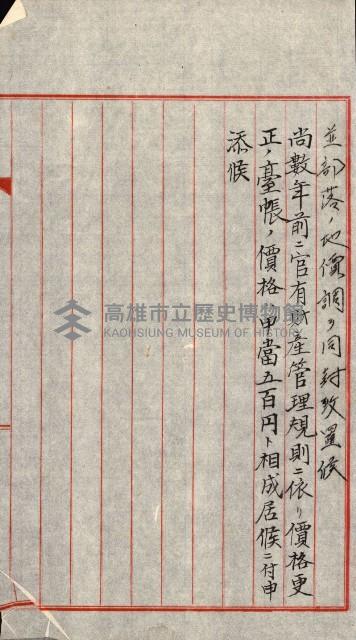 並部落ノ地價調ヲ同封致置候
尚數年前ニ官有財産管理規則ニ依リ價格更
正ノ臺帳ノ價格ハ甲當五百円ト相成居候ニ付申
添候
高雄市立歷史博物館
KAOHSIUNG MUSEUM OF HISTORY